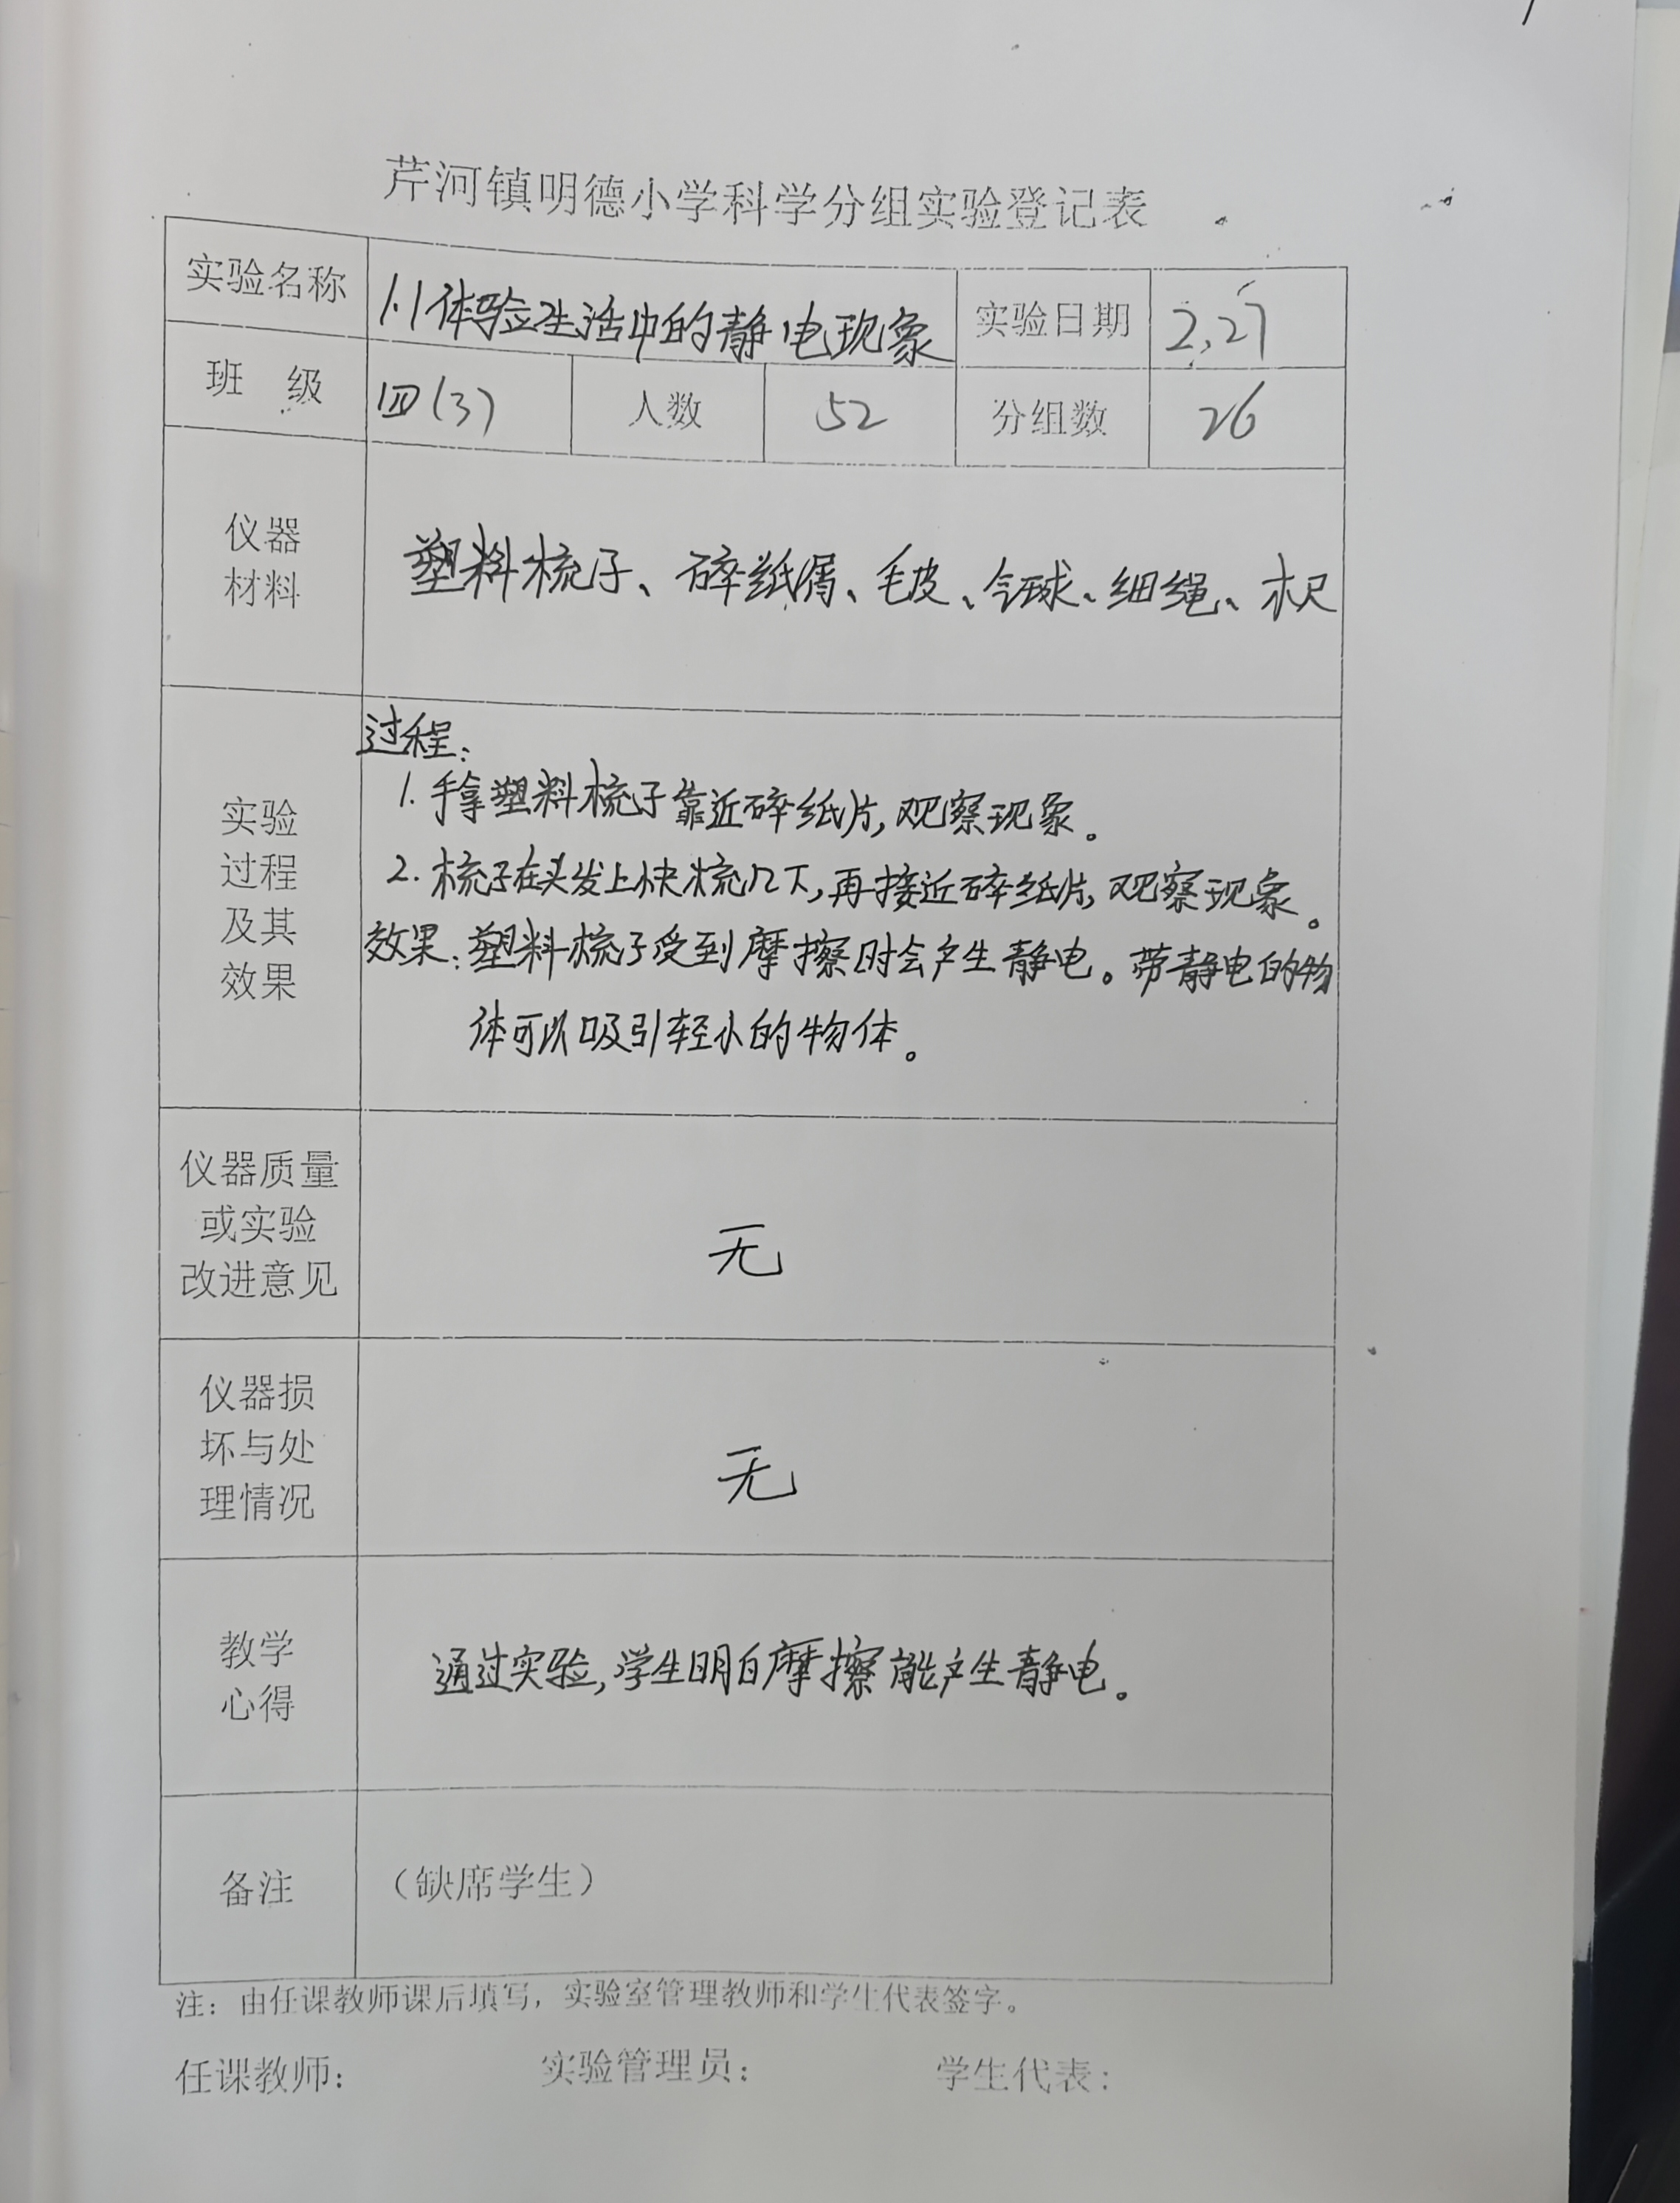 芹河镇明德小学科学分组实验登记表
实验名称 1.1体验生活中的静电现象 实验日期 2.27
班 级 四(3) 人数 52 分组数 26
仪器
材料
塑料梳子、碎纸屑、毛皮、气球、细绳、木尺
实验
过程
及其
效果
过程:
1.手拿塑料梳子靠近碎纸片,观察现象。
2.梳子在头发上快梳几下,再接近碎纸片,观察现象。
效果:塑料梳子受到摩擦时会产生静电。带静电的物
体可以吸引轻小的物体。
仪器质量
或实验
改进意见
无
仪器损
坏与处
理情况
无
教学
心得
通过实验,学生明白摩擦能产生静电。
备注
(缺席学生)
注:由任课教师课后填写,实验室管理教师和学生代表签字。
任课教师: 实验管理员: 学生代表: